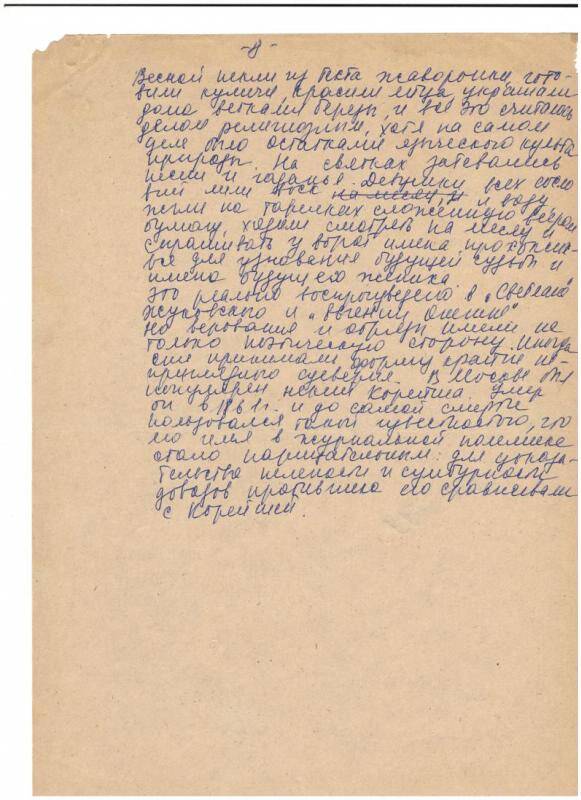 -8-
Весной пекли из теста жаворонки, гото-
вили куличи, красили яйца, украшали
дома ветками березы, и все это считалось
делом религиозным, хотя на самом
деле было остатками языческого культа
природы. На святках затевались
песни и гаданья. Девушки всех сосло
вий лили воск на месяц, и в воду
жгли на тарелках сложенную веером
бумагу, ходили смотреть на месяц и
спрашивать у ворот имена прохожих
все для узнавания будущей судьбы и
имена будущего жениха.
Это реально воспроизведено в "Светлане"
Жуковского и "Евгении Онегине"
Но верования и обряды имели не
только поэтическую сторону. Иногда
они принимали форму крайне не-
приглядного суеверия. В Москве был
популярен некий Корейша. Умер
он в 1861 г. и до самой смерти
пользовался такой известностью, что
имя в журнальной полемике
стало нарицательным: для доказа-
тельства нелепости и сумбурности
доводов противника его сравнивали
с Корейшей.